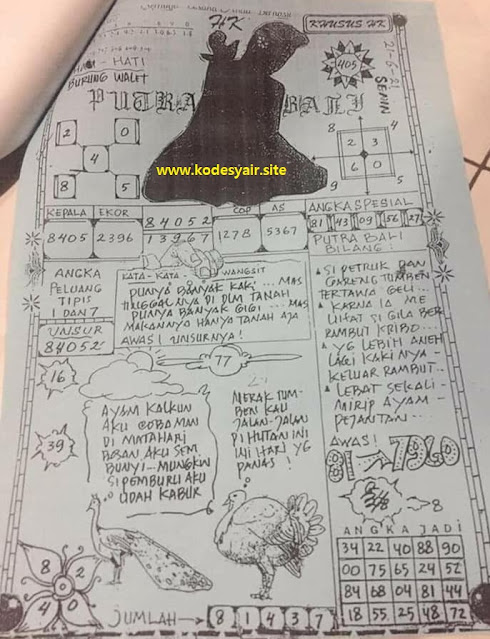 HK
KHUSUS HK
HATI - HATI
BURUNG WALET
405
21-6-21
SENIN
PUTRA BALI
www.kodesyair.site
2 0
4
8 5
4
2 3
6 0
9 5
KEPALA EKOR
8405 2396
84052
13967
COP AS
1278 5367
ANGKA SPESIAL
81 43 09 56 27
PUTRA BALI
BILANG:
ANGKA
PELUANG
TIPIS
1 DAN 7
UNSUR
84052
KATA-KATA WANGSIT
PUNYA BANYAK KAKI... MAS
TINGGALNYA DI DLM TANAH
PUNYA BANYAK GIGI.... MAS
MAKANNYA HANYA TANAH AJA
AWAS! UNSURNYA!
SI PETRUK DAN
GARENG TUMBEN
TERTAWA GELI...
KARNA IA ME
LIHAT SI GILA BER
RAMBUT KRIBO...
YG LEBIH ANEH
LAGI KAKI NYA-
KELUAR RAMBUT...
LEBAT SEKALI-
MIRIP AYAM-
PEJANTAN...
77
16
39
AYAM KALKUN
AKU COBA MAN
DI MATAHARI
BOSAN AKU SEM
BUNYI... MUNGKIN
SI PEMBURU AKU
UDAH KABUR
MERAK TUM-
BEN KAU
JALAN-JALAN
DI HUTAN INI
INI HARI YG
PANAS!
AWAS!
81 7960
8
ANGKA JADI
34 22 40 88 90
00 75 65 24 52
84 68 04 81 44
18 55 25 48 72
8 2
4 0
JUMLAH → 8 1 4 3 7